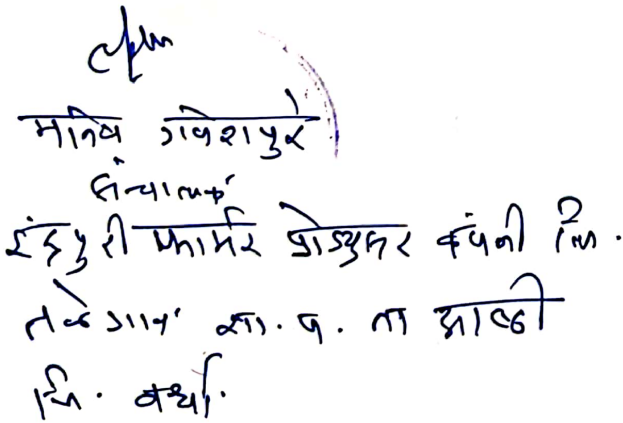 मनिष गणेशपुरे
संचालक
इंद्रपुरी फार्मर प्रोड्युसर कंपनी लि.
तळेगाव श्या. प. ता आष्टी
जि. वर्धा.